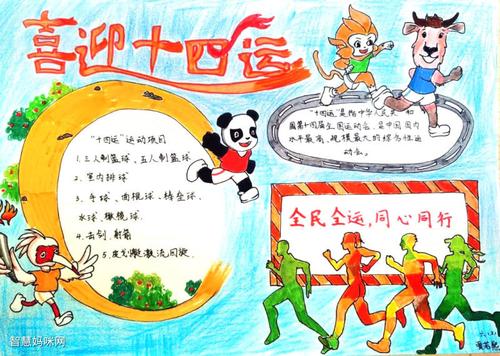 喜迎十四运
"十四运"运动项目
1.三人制篮球、五人制篮球
2.室内排球
3.手球、曲棍球、棒垒球、
水球、橄榄球.
4.击剑、射箭
5.皮划艇激流回旋.
"十四运"是指中华人民共和
国第十四届全国运动会、是中国国内
水平最高、规模最大的综合性运
动会.
全民全运,同心同行
智慧妈咪网